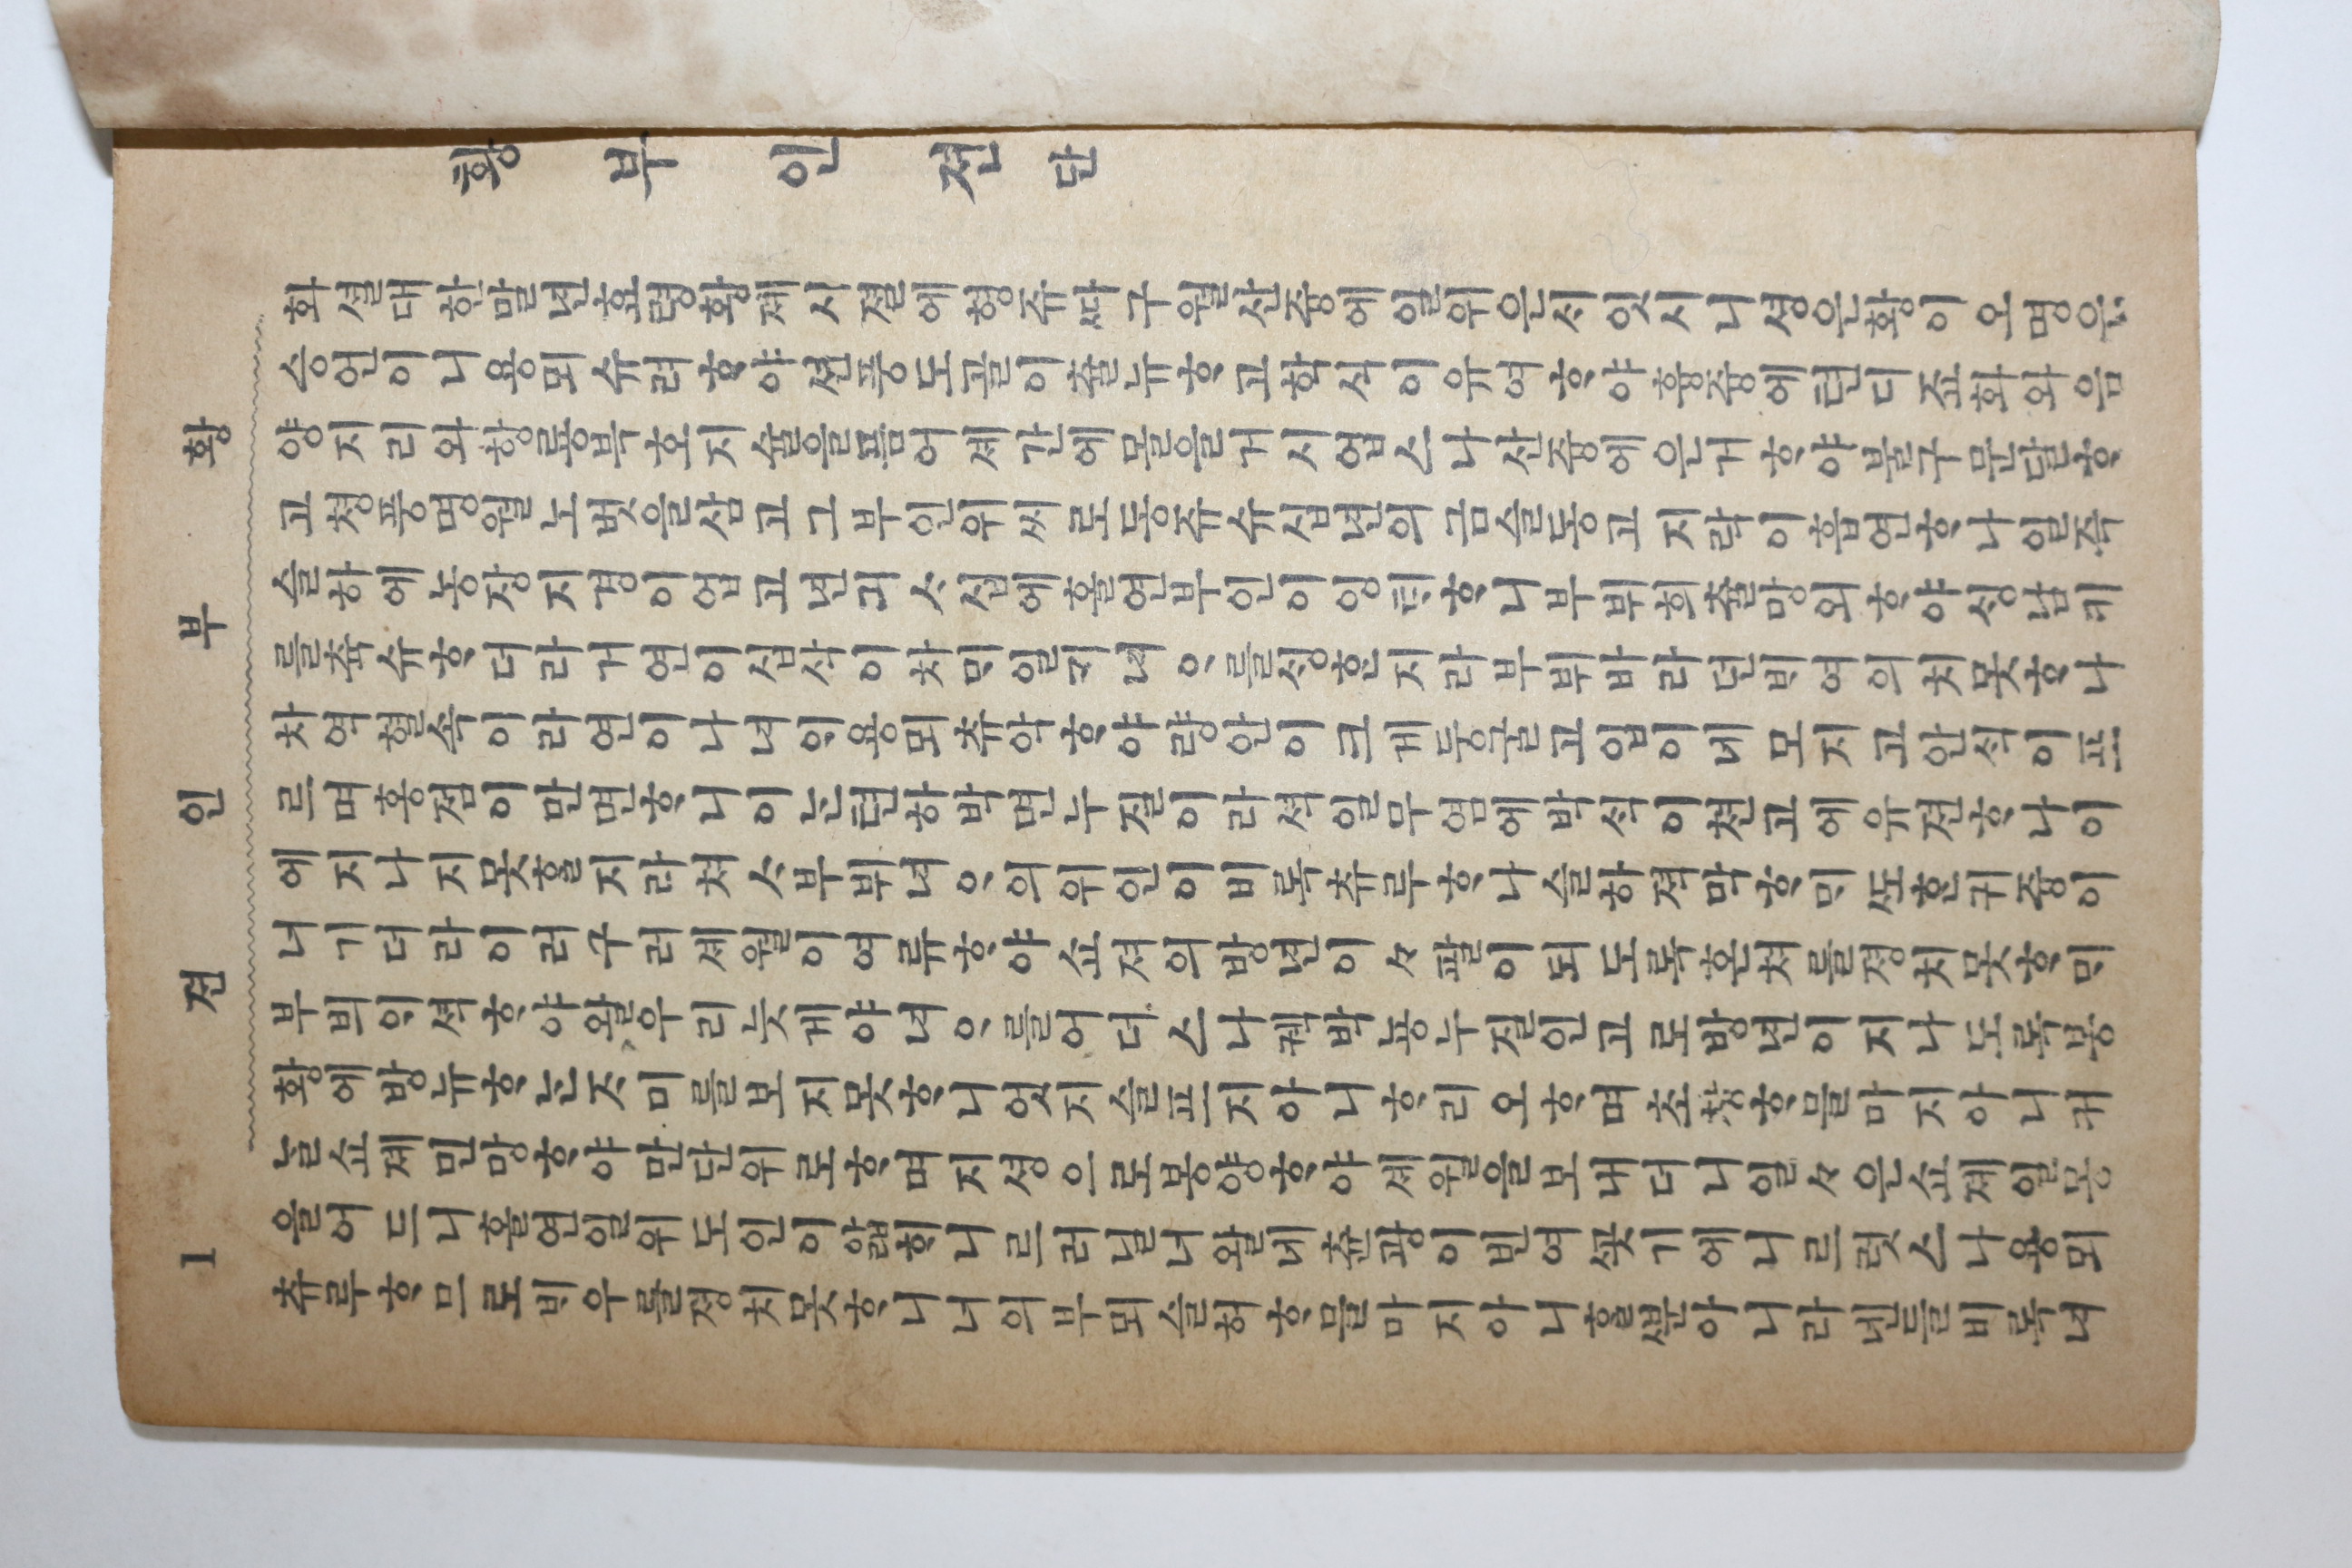 황부인젼 단
화셜대한말년효령황졔시졀에형쥬ᄯᅡ구월산즁에일위은ᄉᆡ잇시니셩은황이오명은
승언이니용뫼슈려ᄒᆞ야션풍도골이츌뉴ᄒᆞ고학식이유여ᄒᆞ야흉즁에텬디죠화와음
양지리와항룡복호지슐을품어셰간에몰을거시업스나산즁에은거ᄒᆞ야불구문달ᄒᆞ
고쳥풍명월노벗을삼고그부인위씨로동쥬슈십년의금슬동고지락이흡연ᄒᆞ나일즉
슬하에농장지경이업고년긔ᄉᆞ십에홀연부인이잉ᄐᆡᄒᆞ니부뷔희츌망외ᄒᆞ야ᄉᆡᆼ남키
를츅슈ᄒᆞ더라거연이십삭이차ᄆᆡ일ᄀᆡ녀ᄋᆞ를ᄉᆡᆼᄒᆞᆫ지라부뷔바라던ᄇᆡ여의치못ᄒᆞ나
차역혈속이라연이나녀ᄋᆡ용뫼츄악ᄒᆞ야량안이크게둥굴고입이네모지고안ᄉᆡᆨ이프
르며홍졈이만면ᄒᆞ니이는텬하박면누질이라셕일무염에박ᄉᆡᆨ이쳔고에유젼ᄒᆞ나이
에지나지못ᄒᆞᆯ지라쳐ᄉᆞ부뷔녀ᄋᆞ의위인이비록츄루ᄒᆞ나슬하젹막ᄒᆞᄆᆡᄯᅩᄒᆞᆫ귀즁이
너기더라이러구러셰월이여류ᄒᆞ야쇼져의방년이々팔이되도록혼쳐를졍치못ᄒᆞᄆᆡ
부뷔ᄋᆡ셕ᄒᆞ야왈우리늣게야녀ᄋᆞ를어더스나ᄀᆡᆨ박용누질인고로방년이지나도록봉
황에방뉴ᄒᆞ는ᄌᆞ미를보지못ᄒᆞ니엇지슬프지아니ᄒᆞ리오ᄒᆞ며초창ᄒᆞ믈마지아니커
늘쇼졔민망ᄒᆞ야만단위로ᄒᆞ며지셩으로봉양ᄒᆞ야셰월을보내더니일々은쇼졔일몽
을어드니홀연일위도인이압ᄒᆡ니르러닐너왈네츈광이빈여ᄭᅩᆺ기에니르럿스나용뫼
츄루ᄒᆞ므로ᄇᆡ우를졍치못ᄒᆞ니너의부뫼슬허ᄒᆞ믈마지아니ᄒᆞᆯᄲᅮᆫ아니라녠들비록녀
황부인젼
1